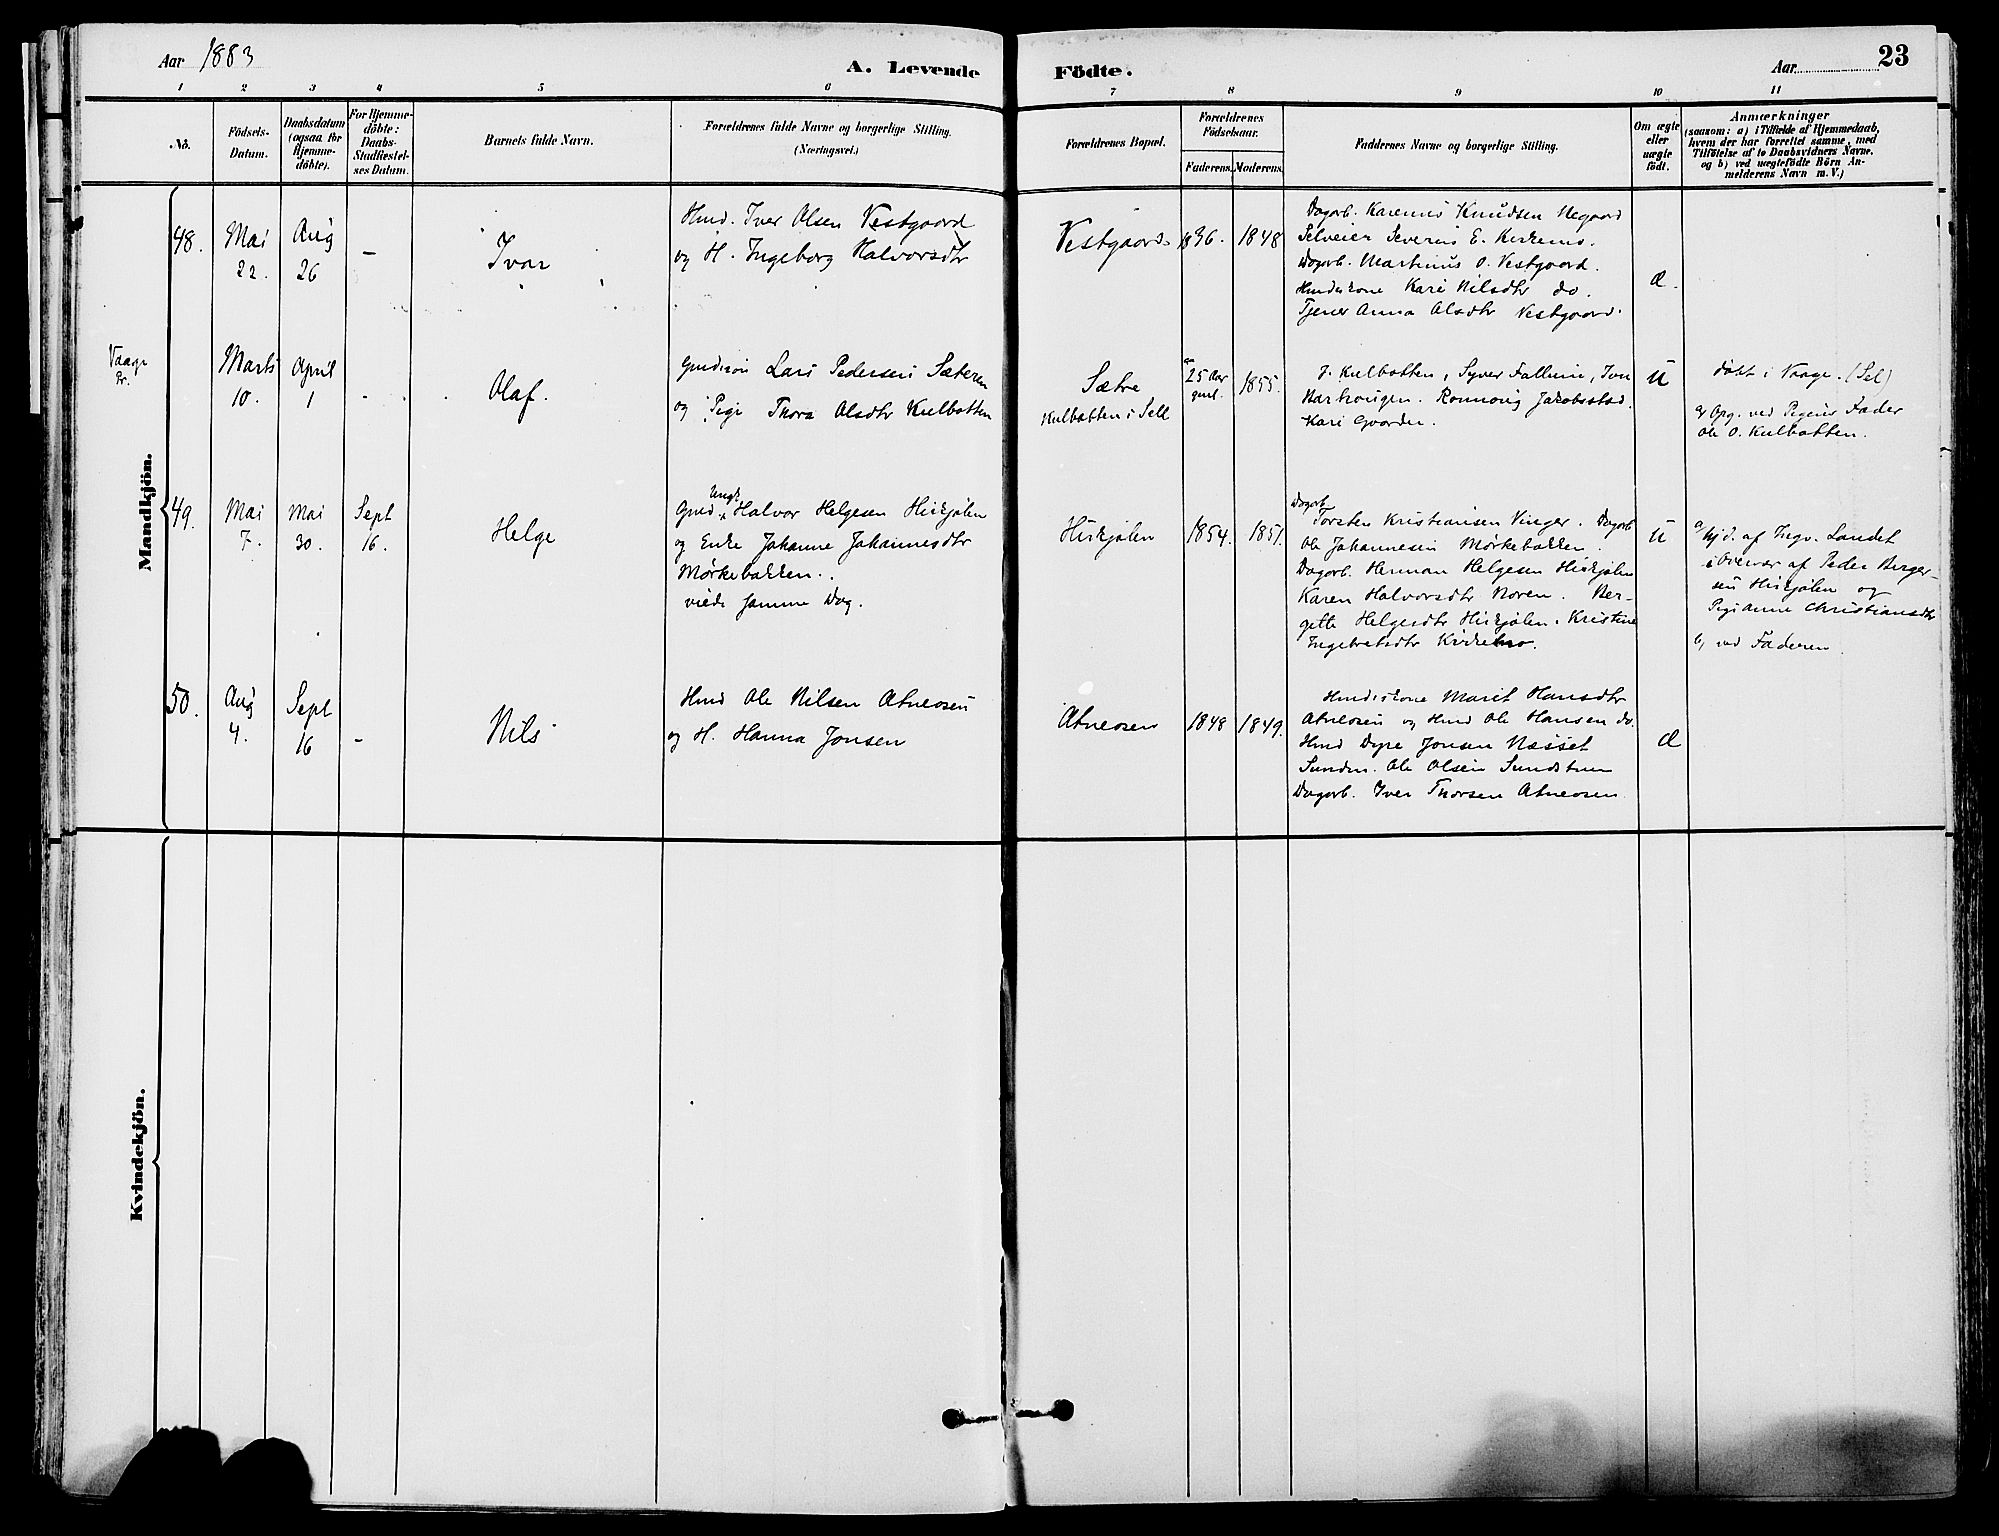 Aar 1883
A. Levende Födte.
Aar 23
1 2 3 4 5 6 7 8 9 10 11
No.
Födsels-
Datum.
Daabsdatum
(ogsaa for
Hjemme-
döbte).
For Hjemme-
döbte:
Daabs-
Stadfæstel-
ses Datum.
Barnets fulde Navn.
Forældrenes fulde Navne og borgerlige Stilling.
(Næringsvei.)
Forældrenes Bopæl.
Forældrenes
Födselsaar.
Faderens. Moderens.
Faddernes Navne og borgerlige Stilling.
Om ægte
eller
uægte
født.
Anmærkninger
(saasom: a) i Tilfælde af Hjemmedaab,
hvem der har forrettet samme, med
Tilføielse af to Daabsvidners Navne.
og b) ved uægtefödte Börn An-
melderens Navn m. V.)
Mandkjön.
48.
Mai
22.
Aug
26
-
Ivar
Hmd. Iver Olsen Vestgaard
og H. Ingeborg Halvorsdtr
Vestgaard
1836.
1848
Dagarb. Karenus Knudsen Negaard
Selveier Severin E. Kirkemo.
Dagarb. Martinus O. Vestgaard.
Husmdskone Kari Nilsdtr do.
Tjener Anna Olsdtr Vestgaard.
Vaage
Pr.
Marts
10.
April
1
-
Olaf.
Gmdsøn Lars Pedersen Sæteren
og Pige Thora Olsdtr Kulbotten
Sætre
Kulbotten i Sell
25 Aar
gml.
1855.
J. Kulbotten, Syver
Ronnoug Jakobsstad.
Kari
U
døbt i Vaage. (Sel)
Opg. ved Pigens Fader
Ole O. Kulbotten.
49.
Mai
7.
Mai
30.
Sept
16.
Helge
Ungk.
Gmd Halvor Helgesen Hirkjølen
og Enke Johanne Johannesdtr
Mørkebakken.
viede samme Dag.
Hirkjølen
1854.
1851.
Dagarb.
Torsten Kristiansen Vinger. Dagarb
Ole Johannesen Mørkebakken.
Dagarb. Herman Helgesen Hirkjølen
Karen Halvorsdtr Moren. Ber-
gette Helgesdtr Hirkjølen. Kristine
Ingebretsdtr Kirkemo.
U
a) hjd. af Ingv. Landet
i Overvær af Peder Berger-
sen Hirkjølen og
Pige Anne Christiansdtr
b) ved Faderen.
50.
Aug
4.
Sept
16
-
Nils
Hmd Ole Nilsen Atneosen
og H. Hanna Jonsen
Atneosen
1848
1849.
Husmdskone Marit Hansdtr
Atneosen og Hmd Ole Hansen do.
Hmd Dyre Jonsen Næsset
Ole Olsen
Dagarb. Iver Thorsen Atneosen
Kvindekjön.